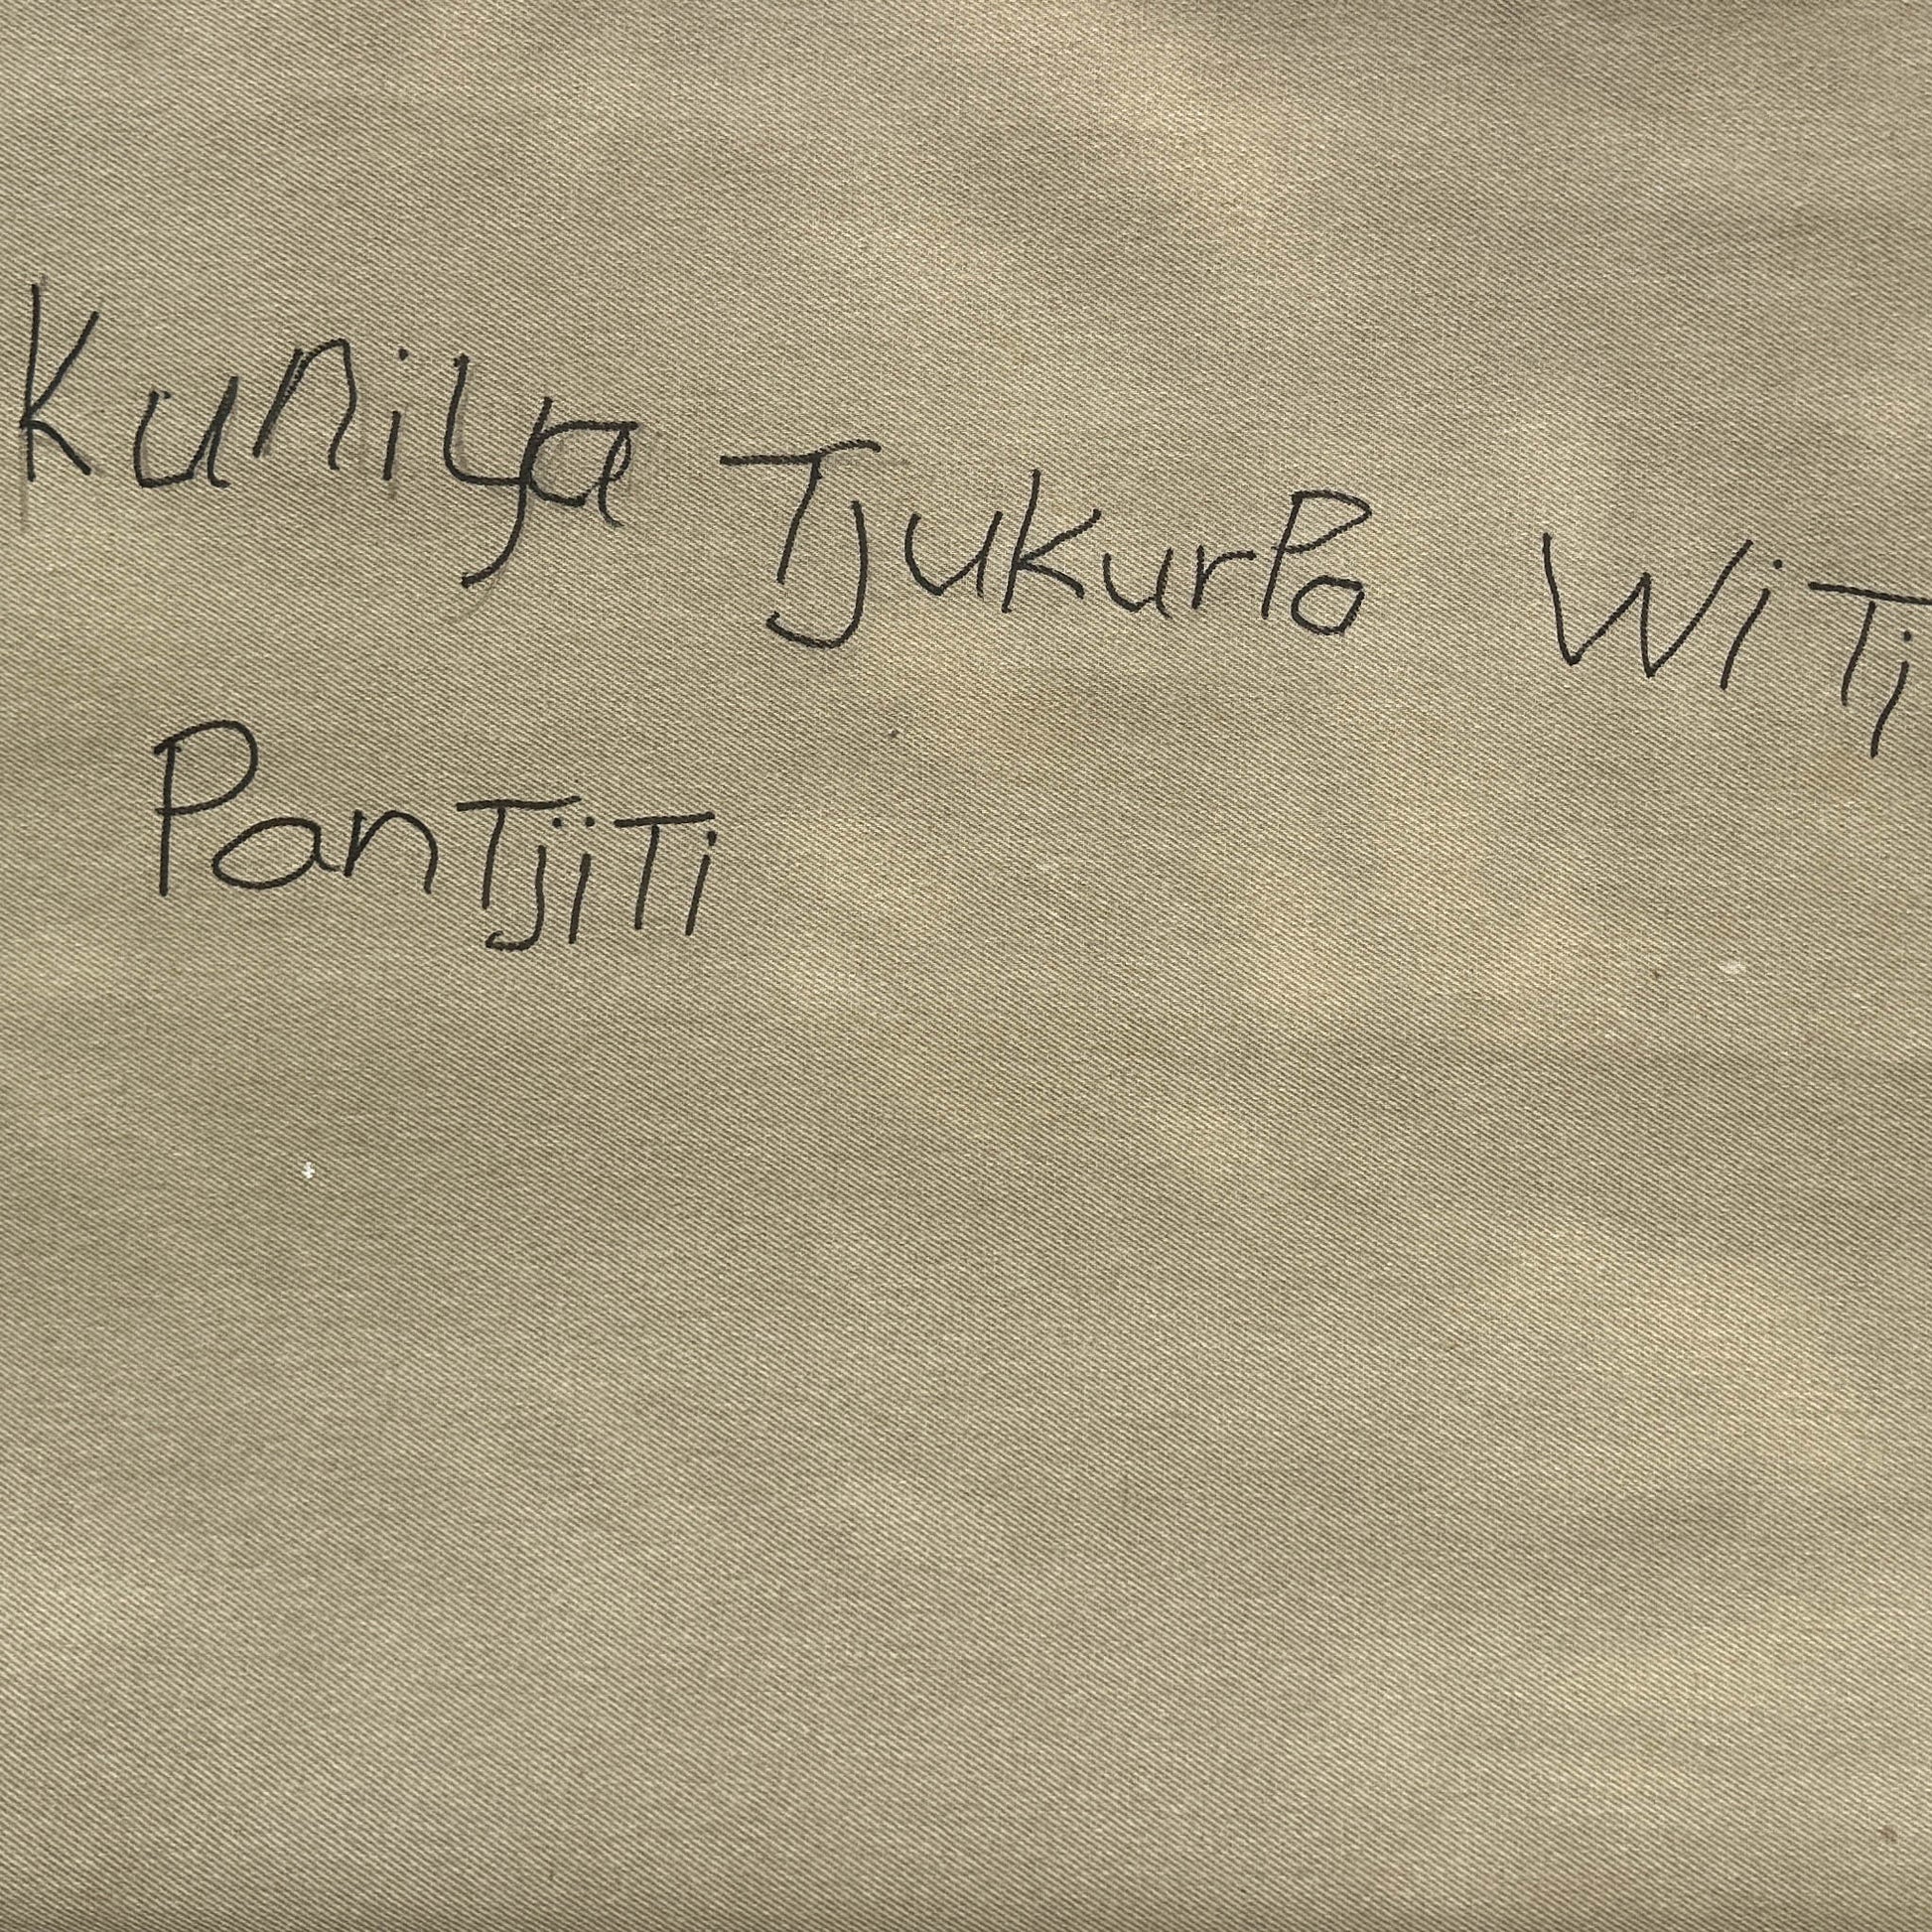 Kuniya TjukurPa WiTi
PanTjiTi